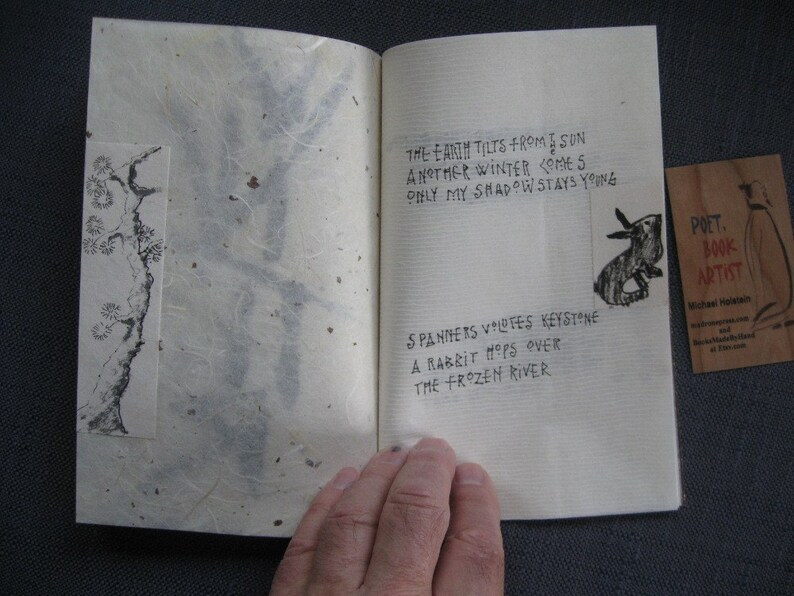 THE EARTH TILTS FROM THE SUN
ANOTHER WINTER COMES
ONLY MY SHADOW STAYS YOUNG
SPANNERS VOLUTES KEYSTONE
A RABBIT HOPS OVER
THE FROZEN RIVER
POET,
BOOK
ARTIST
Michael Holstein
madronapress.com
and
BooksMadeByHand
at Etsy.com